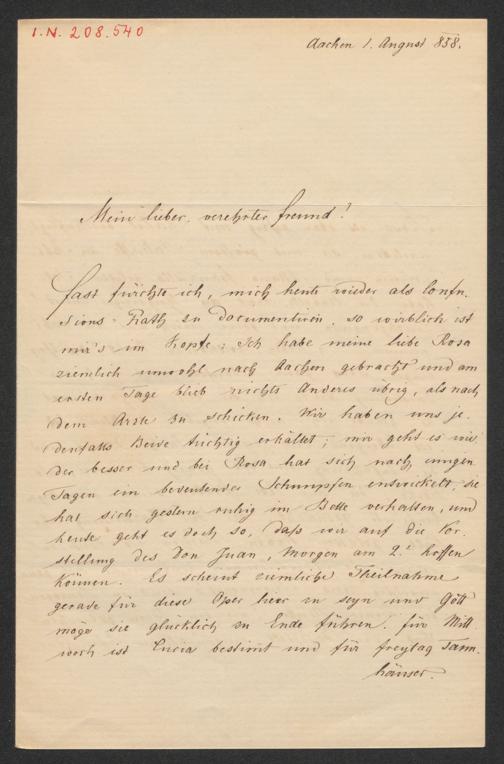 I.N. 208.540
Aachen 1. August 858.
Mein lieber, verehrter Freund!
Fast fürchte ich, mich heute wieder als Confu-
sions-Rath zu documentiren, so wirblich ist
mir's im Kopfe: Ich habe meine liebe Rosa
ziemlich unwohl nach Aachen gebracht und am
ersten Tage blieb nichts Anderes übrig, als nach
dem Arzte zu schicken. Wir haben uns je-
denfalls Beide tüchtig erkältet; mir geht es wie
der besser und bei Rosa hat sich nach einigen
Tagen ein bedeutender Schnupfen entwickelt; sie
hat sich gestern ruhig im Bette verhalten, und
heute geht es doch so, daß wir auf die Vor-
stellung des Don Juan, Morgen am 2t hoffen
können. Es scheint ziemliche Theilnahme
gerade für diese Oper hier zu seyn und Gott
möge sie glücklich zu Ende führen. Für Mitt
woch ist Lucia bestimt und für Freytag Tann-
häuser.